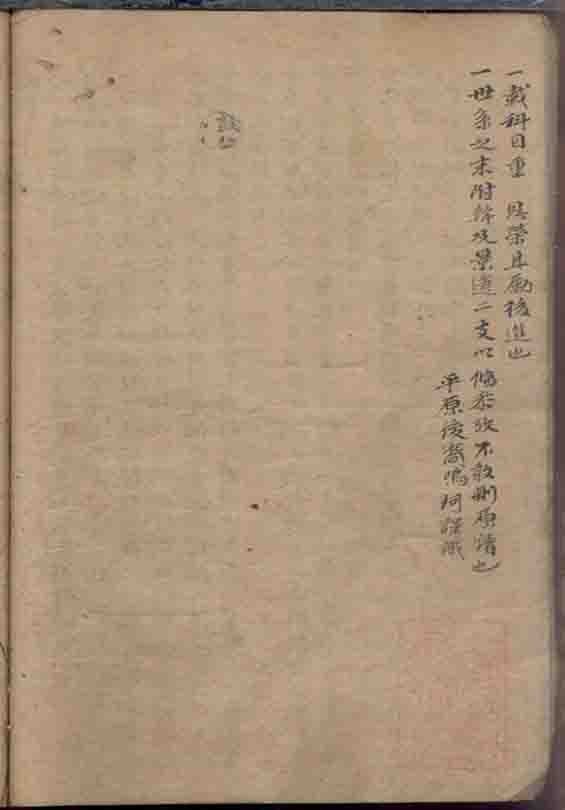 一載科目重 恩榮且勵後進也
一世系之末附韓城景運二支以備參攷不敢刪原譜也
平原後裔鳴珂謹識